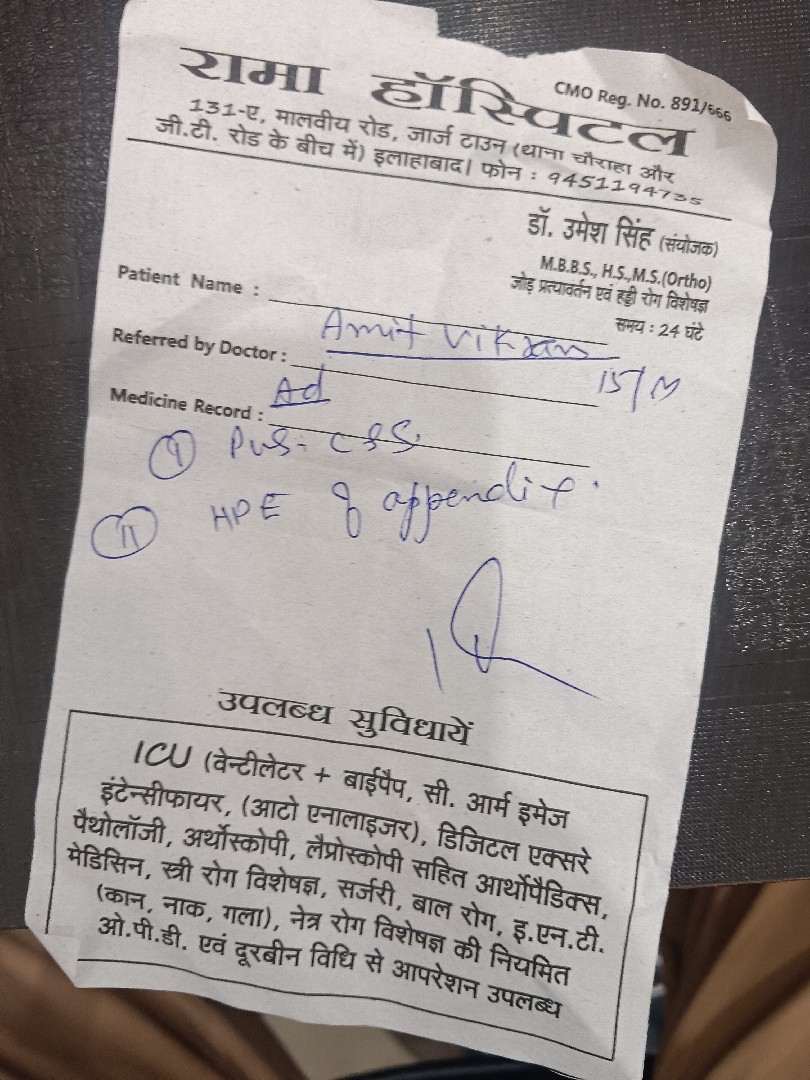 CMO Reg. No. 891/666
रामा हॉस्पिटल
131-ए, मालवीय रोड, जार्ज टाउन (थाना चौराहा और
जी.टी. रोड के बीच में) इलाहाबाद। फोन : 9451194735
डॉ. उमेश सिंह (संयोजक)
M.B.B.S., H.S.,M.S.(Ortho)
जोड़ प्रत्यावर्तन एवं हड्डी रोग विशेषज्ञ
समय : 24 घंटे
Patient Name :
Amit Vikram
Referred by Doctor :
15/M
Medicine Record :
Ad
I Pus. C&S.
II HPE of appendix.
उपलब्ध सुविधायें
ICU (वेन्टीलेटर + बाईपैप, सी. आर्म इमेज
इंटेन्सीफायर, (आटो एनालाइजर), डिजिटल एक्सरे
पैथोलॉजी, अर्थोस्कोपी, लैप्रोस्कोपी सहित आर्थोपैडिक्स,
मेडिसिन, स्त्री रोग विशेषज्ञ, सर्जरी, बाल रोग, इ.एन.टी.
(कान, नाक, गला), नेत्र रोग विशेषज्ञ की नियमित
ओ.पी.डी. एवं दूरबीन विधि से आपरेशन उपलब्ध